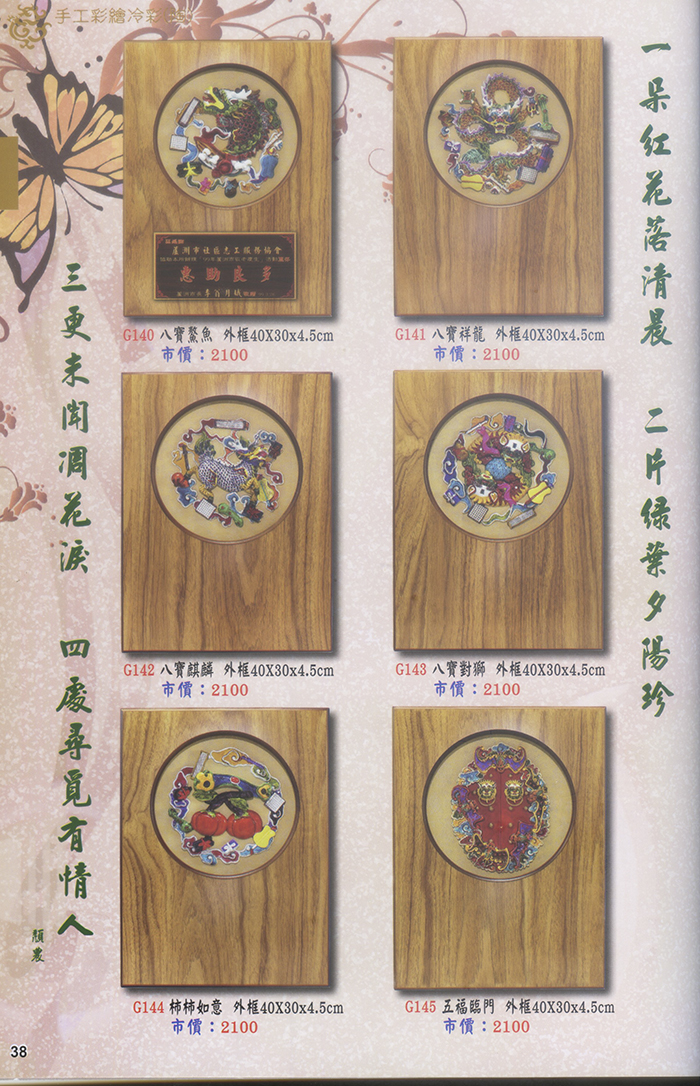 手工彩繪冷彩
一朵紅花落清晨　二片绿葉夕陽珍
三更未聞凋花淚　四處尋覓有情人
顏農
蘆洲市社區志工服務協會
惠助良多
G140 八寶鰲魚 外框40X30x4.5cm
市價：2100
G141 八寶祥龍 外框40X30x4.5cm
市價：2100
G142 八寶麒麟 外框40X30x4.5cm
市價：2100
G143 八寶對獅 外框40X30x4.5cm
市價：2100
G144 柿柿如意 外框40X30x4.5cm
市價：2100
G145 五福臨門 外框40X30x4.5cm
市價：2100
38